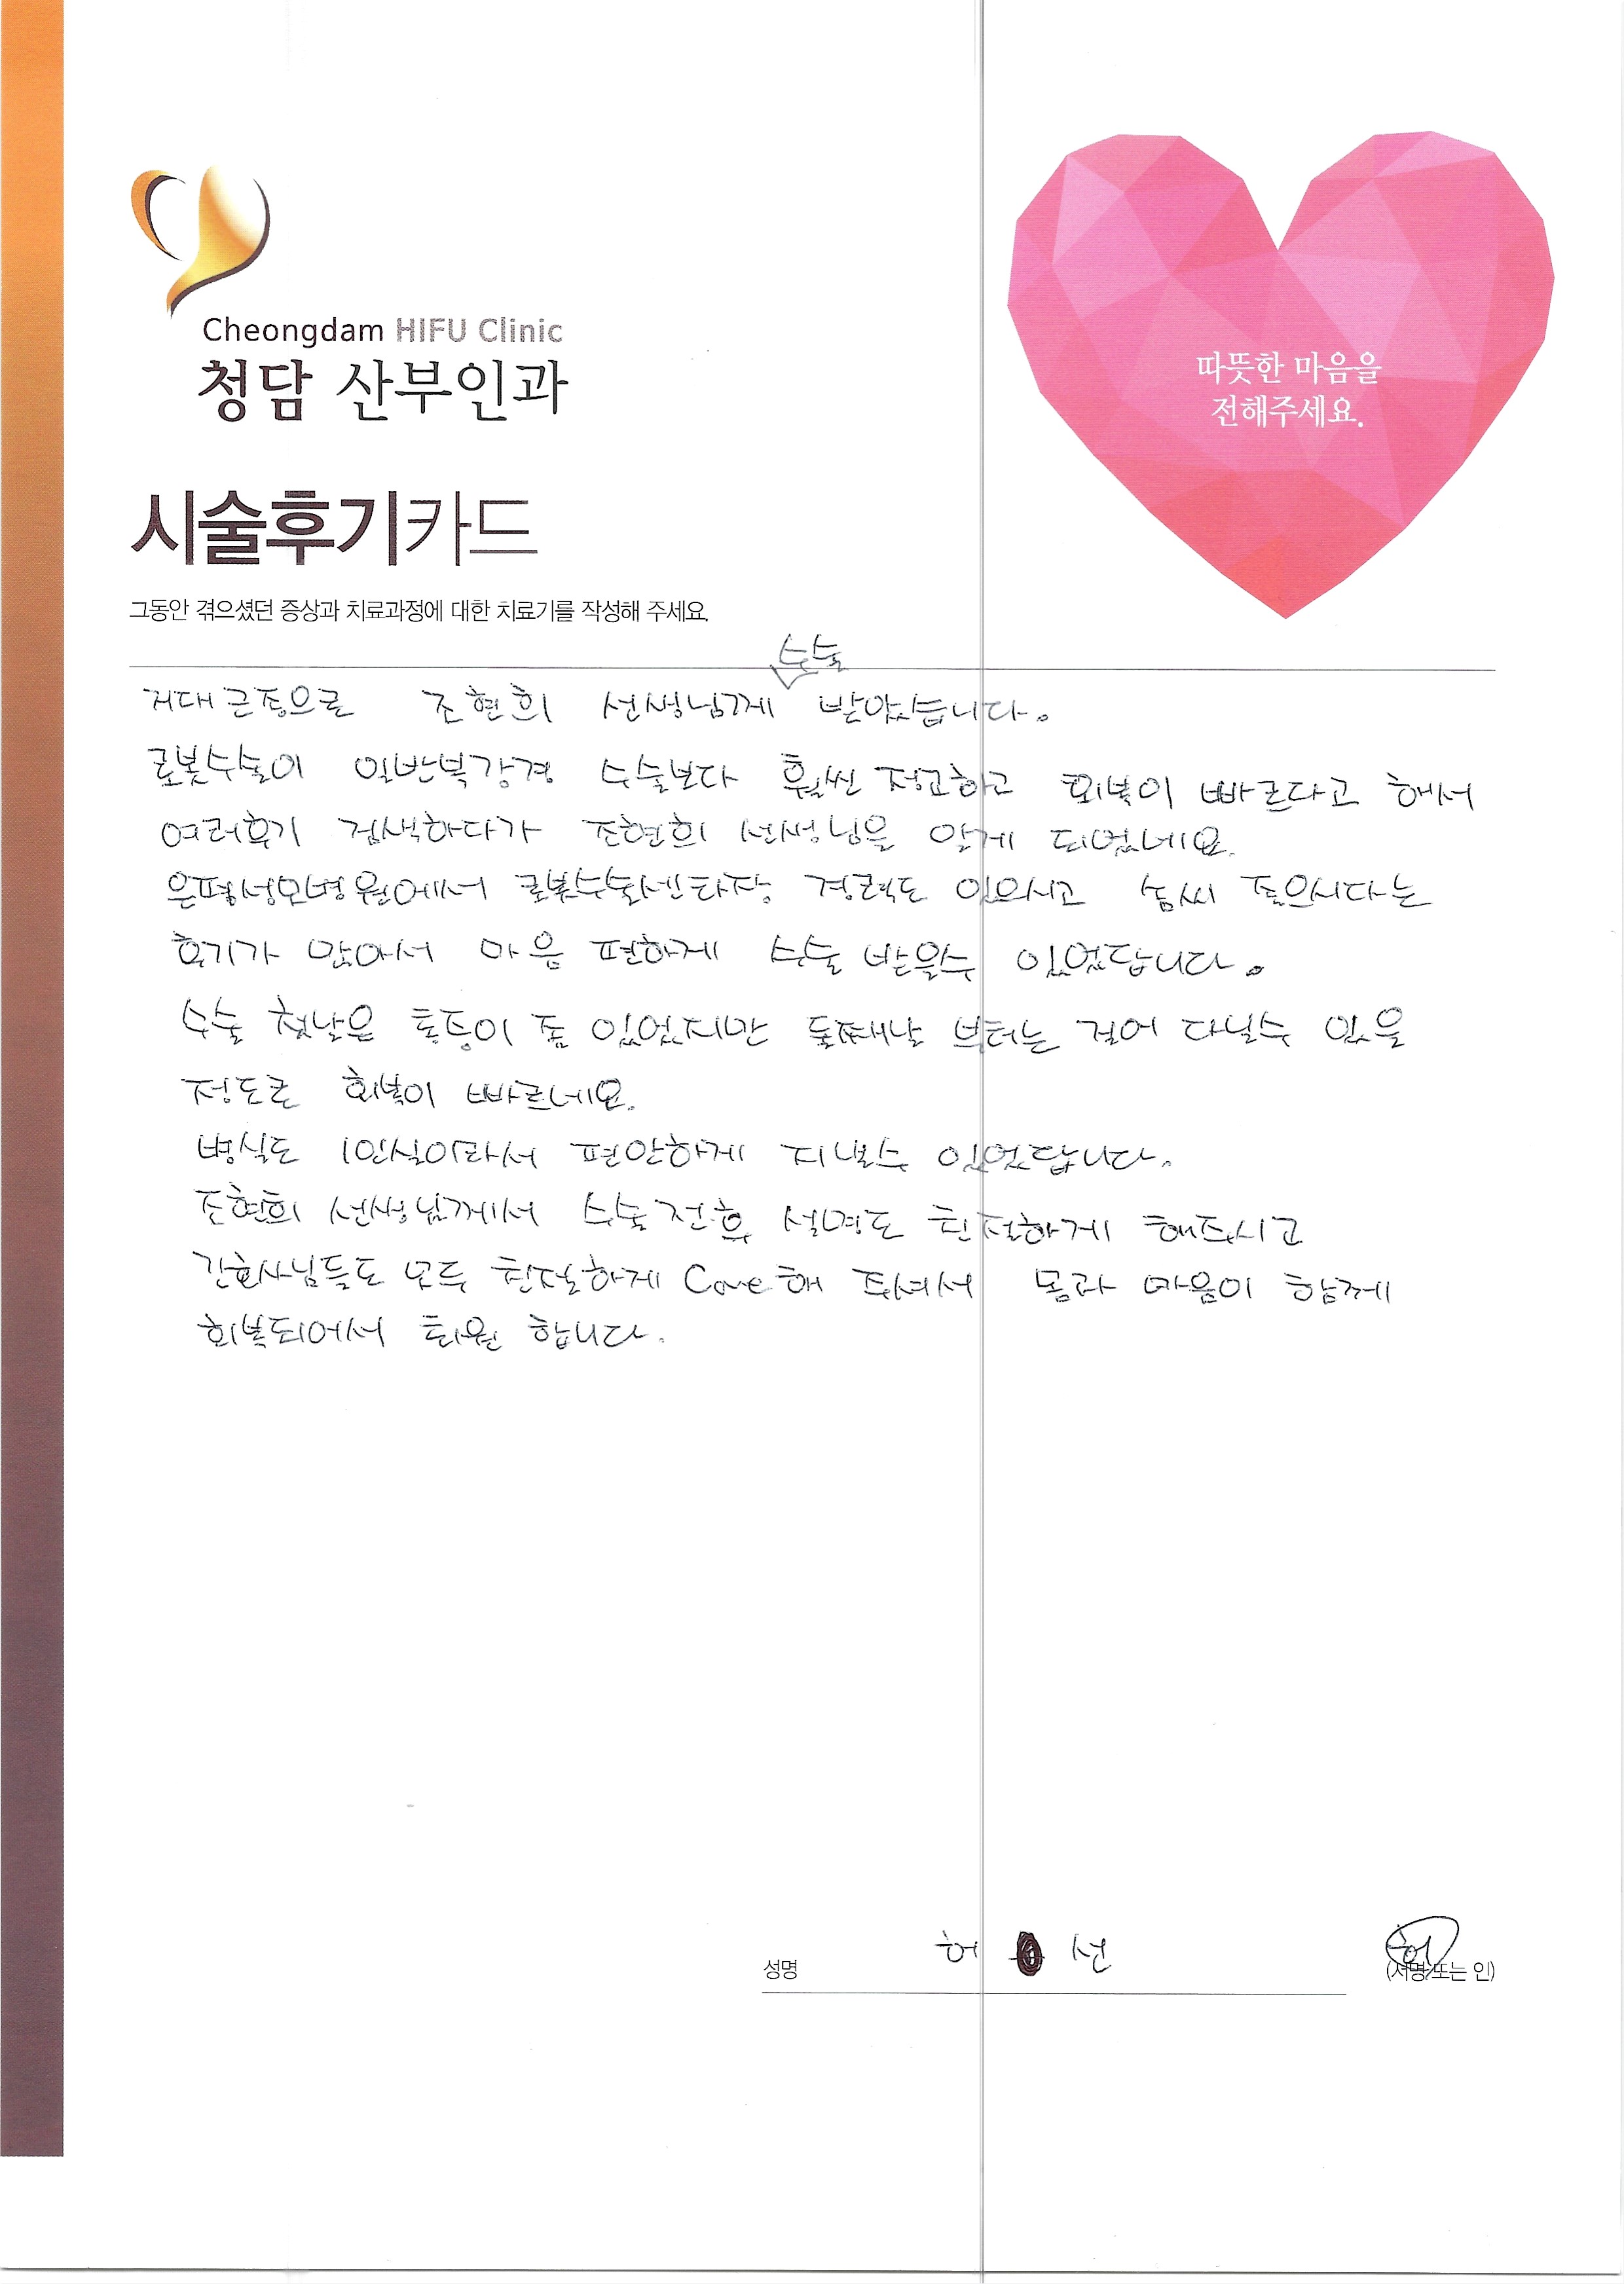 Cheongdam HIFU Clinic
청담 산부인과
따뜻한 마음을
전해주세요.
시술후기카드
그동안 겪으셨던 증상과 치료과정에 대한 치료기를 작성해 주세요.
수술
거대근종으로 조현희 선생님께 받았습니다.
로봇수술이 일반복강경 수술보다 훨씬 정교하고 회복이 빠르다고 해서
여러후기 검색하다가 조현희 선생님을 알게 되었네요.
은평성모병원에서 로봇수술센타장 경력도 있으시고 솜씨 좋으시다는
후기가 많아서 마음 편하게 수술 받을수 있었답니다.
수술 첫날은 통증이 좀 있었지만 둘째날 부터는 걸어 다닐수 있을
정도로 회복이 빠르네요.
병실도 1인실이라서 편안하게 지낼수 있었답니다.
조현희 선생님께서 수술전후 설명도 친절하게 해주시고
간호사님들도 모두 친절하게 Care해 주셔서 몸과 마음이 함께
회복되어서 퇴원 합니다.
성명 허 선
(서명 또는 인)